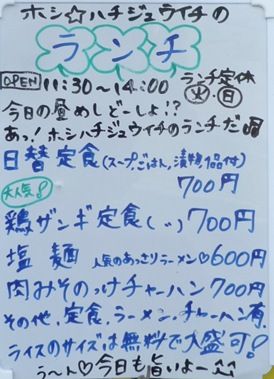 ホシ☆ハチジュウイチの
ランチ
OPEN 11:30~14:00 ランチ定休 火・日
今日の昼めしどーしよ!?
あっ!ホシハチジュウイチのランチだ
日替定食(スープ、ごはん、漬物、1品付)
700円
大人気!
鶏ザンギ定食(〃)700円
塩麺 人気のあっさりラーメン♡600円
肉みそのっけチャーハン700円
その他、定食、ラーメン、チャーハン有
ライスのサイズは無料で大盛可!
う〜ト♡今日も旨いよー